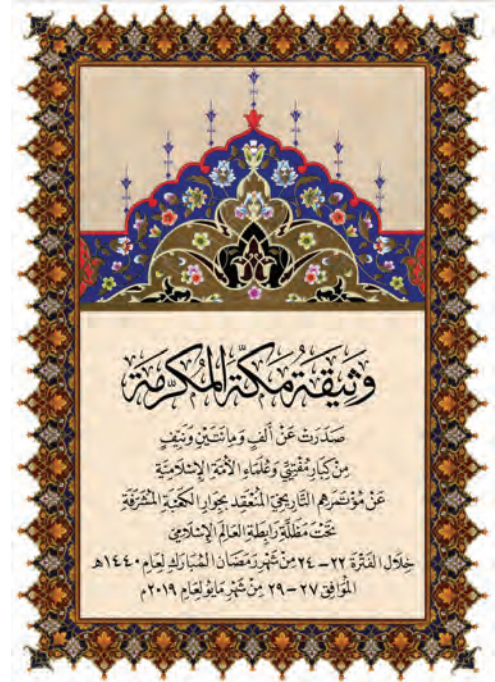 وَثِيقَةُ مَكَّةَ المُكَرَّمَةِ
صَدَرَتْ عَنْ أَلْفٍ وَمِائَتَيْنِ وَنَيِّفٍ
مِنْ كِبَارِ مُفْتِيِّ وَعُلَمَاءِ الأُمَّةِ الإِسْلَامِيَّةِ
عَنْ مُؤْتَمَرِهِمِ التَّارِيخِيِّ المُنْعَقِدِ بِجِوَارِ الكَعْبَةِ المُشَرَّفَةِ
تَحْتَ مَظَلَّةِ رَابِطَةِ العَالَمِ الإِسْلَامِيِّ
خِلَالَ الفَتْرَةِ ٢٢ – ٢٤ مِنْ شَهْرِ رَمَضَانَ المُبَارَكِ لِعَامِ ١٤٤٠هـ
المُوَافِقِ ٢٧ – ٢٩ مِنْ شَهْرِ مَايُو لِعَامِ ٢٠١٩م